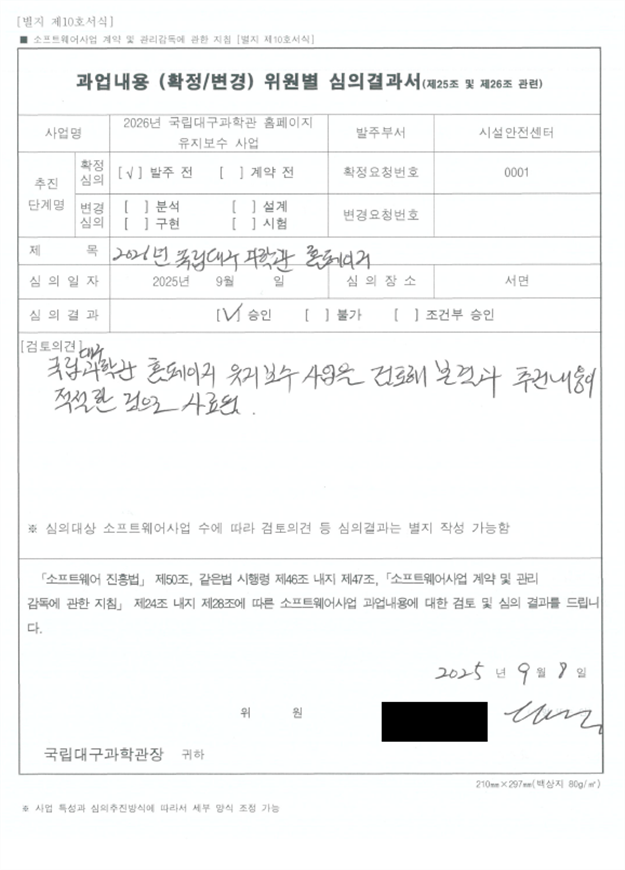 [별지 제10호서식]
■ 소프트웨어사업 계약 및 관리감독에 관한 지침 [별지 제10호서식]
과업내용 (확정/변경) 위원별 심의결과서(제25조 및 제26조 관련)
사업명 2026년 국립대구과학관 홈페이지 유지보수 사업 발주부서 시설안전센터
추진 단계명 확정 심의 [√] 발주 전 [ ] 계약 전 확정요청번호 0001
변경 심의 [ ] 분석 [ ] 설계 변경요청번호
[ ] 구현 [ ] 시험
제 목 2026년 국립대구과학관 홈페이지
심의일자 2025년 9월 일 심의장소 서면
심의결과 [√] 승인 [ ] 불가 [ ] 조건부 승인
[검토의견]
국립대구과학관 홈페이지 유지보수 사업을 검토해 본 결과 추진내용이
적절한 것으로 사료됨.
※ 심의대상 소프트웨어사업 수에 따라 검토의견 등 심의결과는 별지 작성 가능함
「소프트웨어 진흥법」 제50조, 같은법 시행령 제46조 내지 제47조, 「소프트웨어사업 계약 및 관리
감독에 관한 지침」 제24조 내지 제28조에 따른 소프트웨어사업 과업내용에 대한 검토 및 심의 결과를 드립니
다.
2025 년 9 월 8 일
위 원
국립대구과학관장 귀하
210㎜×297㎜(백상지 80g/㎡)
※ 사업 특성과 심의추진방식에 따라서 세부 양식 조정 가능